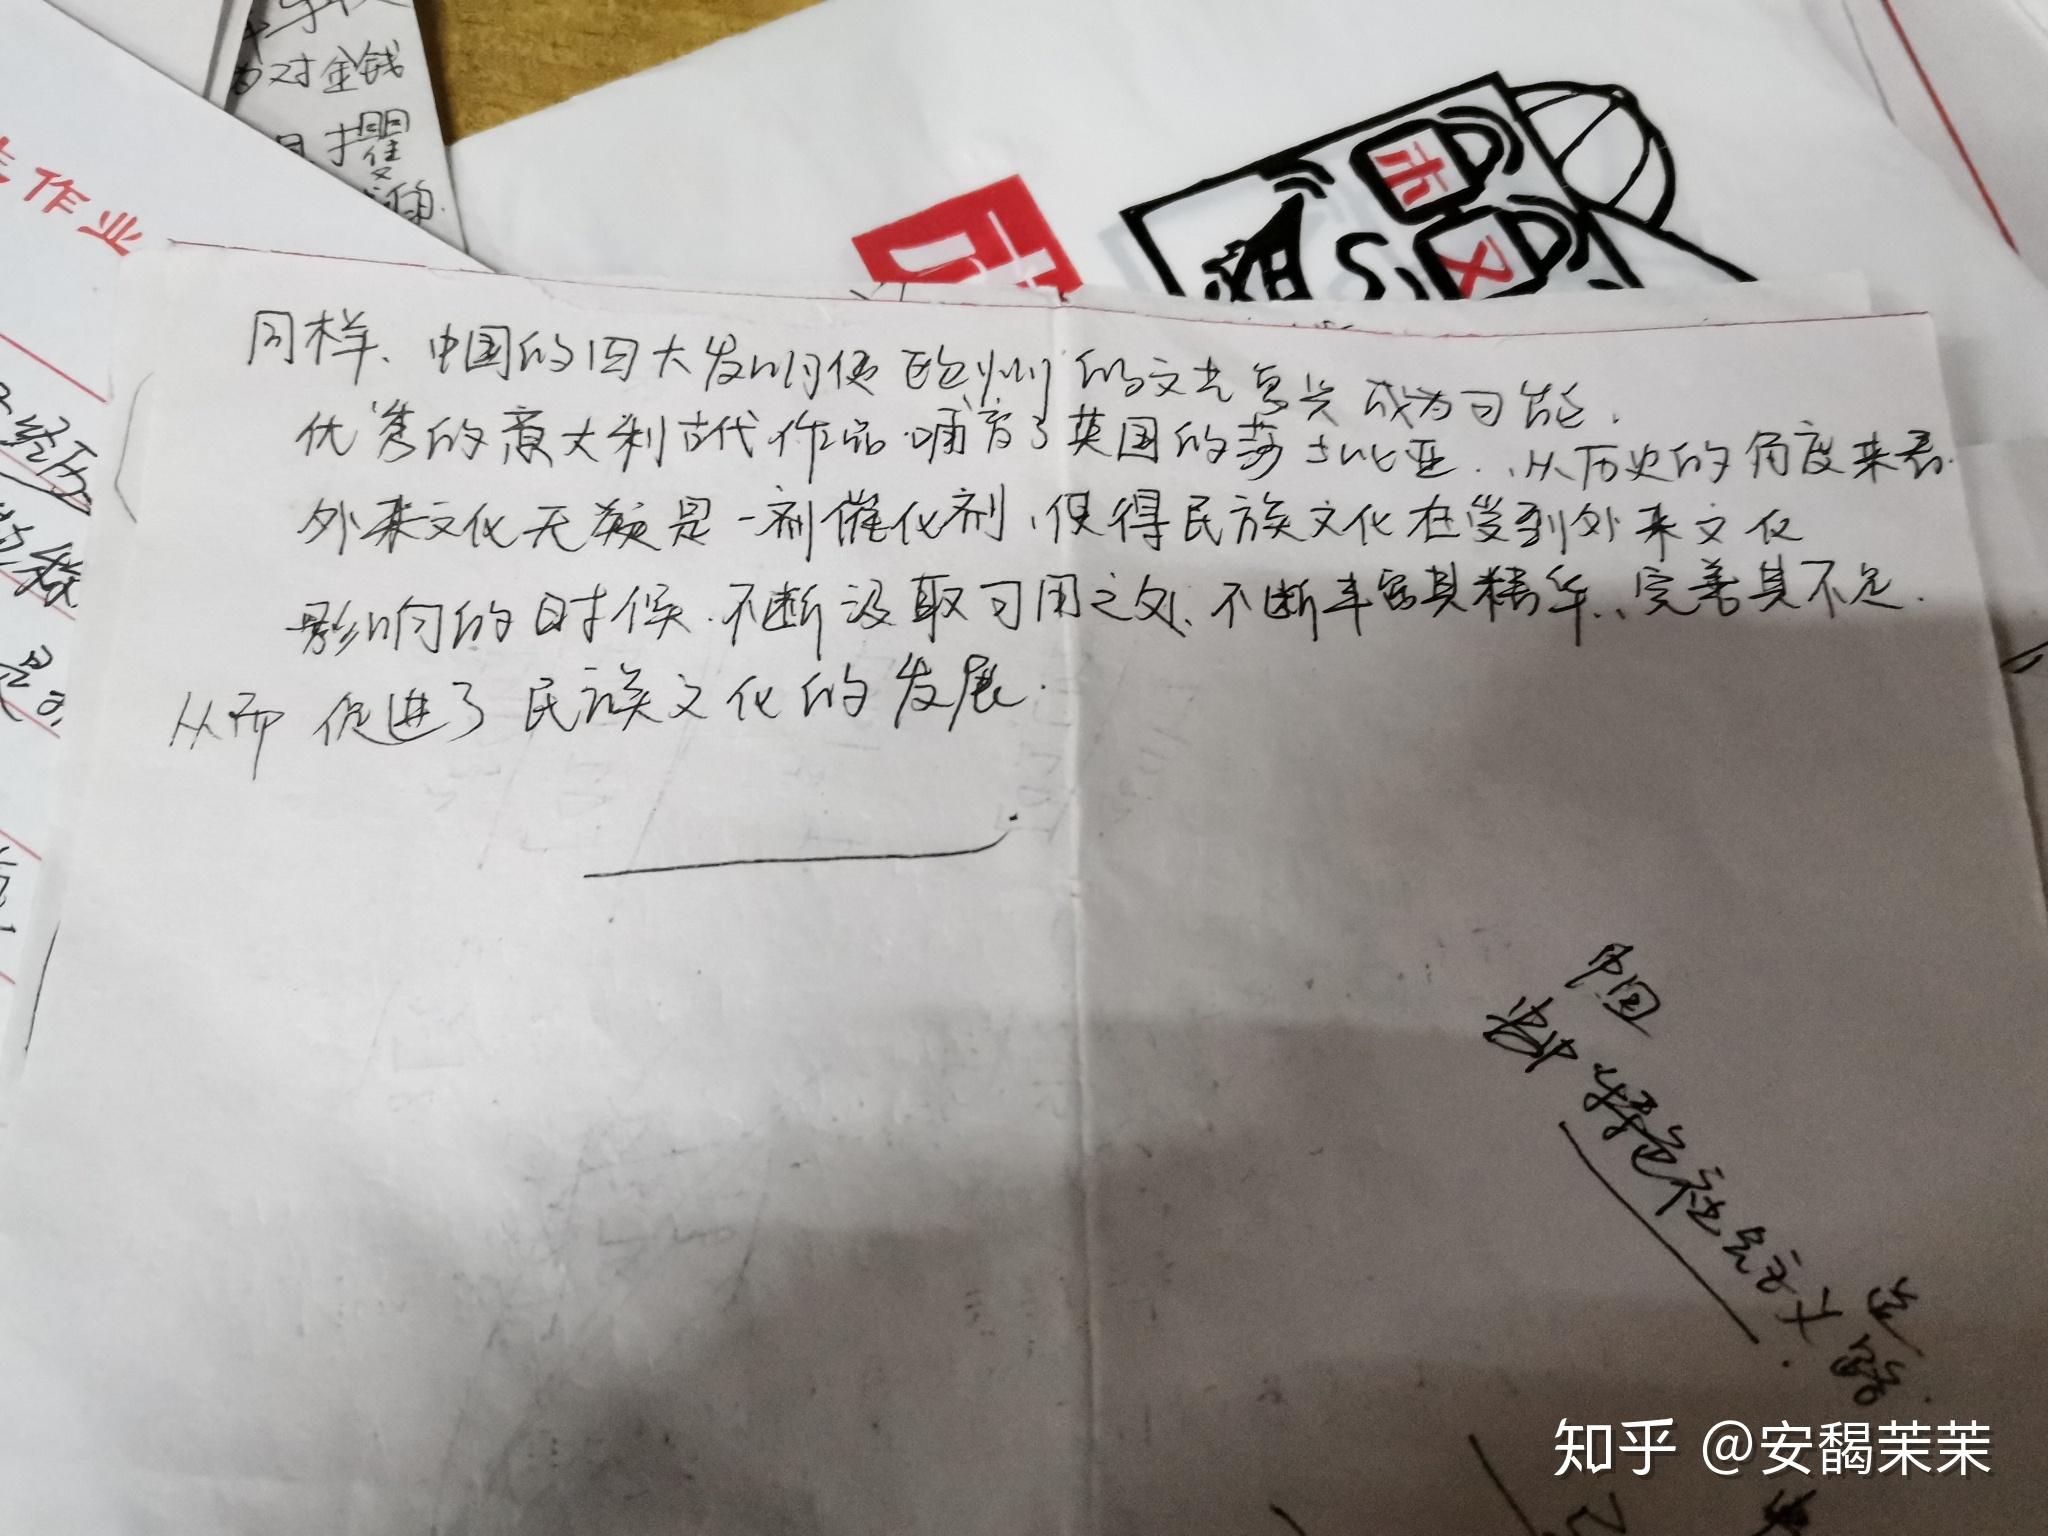 对金钱
作业
同样、中国的四大发明使欧州的文艺复兴成为可能.
优秀的意大利古代作品哺育了英国的莎士比亚.从历史的角度来看.
外来文化无疑是一剂催化剂,使得民族文化在受到外来文化
影响的时候.不断汲取可用之处、不断丰富其精华.、完善其不足.
从而促进了民族文化的发展.
中国
特色社会主义
道路.
知乎 @安馤茉茉